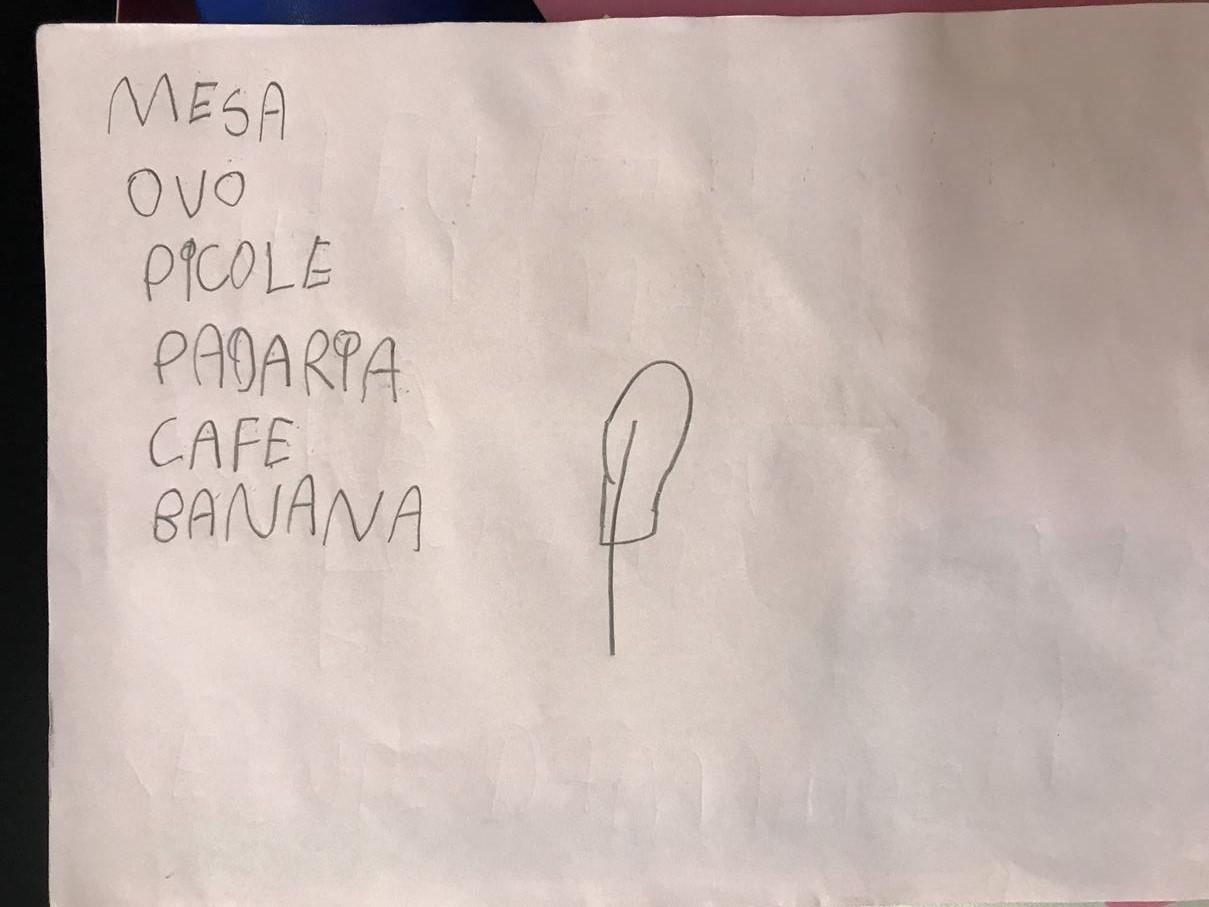 MESA
OVO
PICOLE
PADARIA
CAFE
BANANA